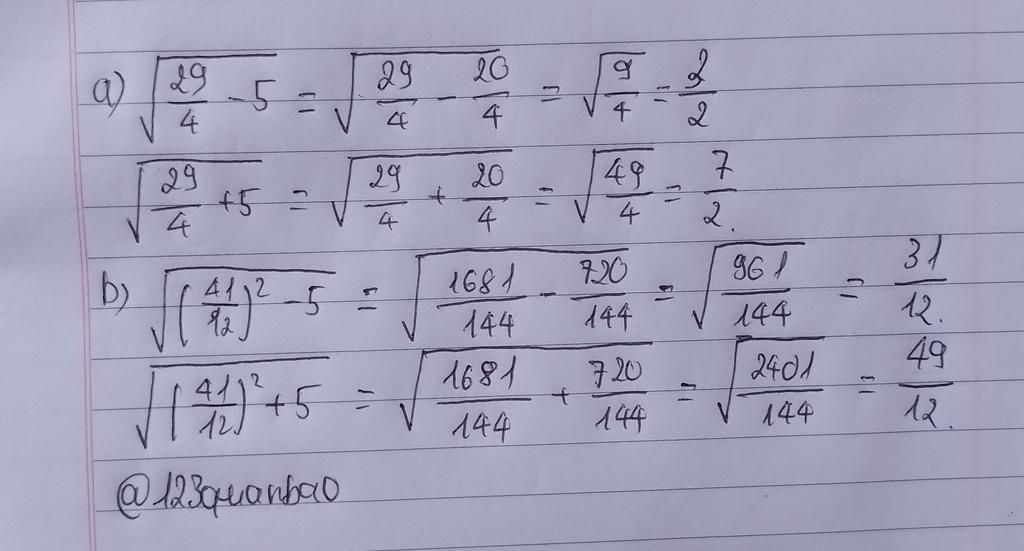 a) √(29/4 - 5) = √(29/4 - 20/4) = √(9/4) = 3/2
√(29/4 + 5) = √(29/4 + 20/4) = √(49/4) = 7/2.
b) √((41/12)² - 5) = √(1681/144 - 720/144) = √(961/144) = 31/12.
√((41/12)² + 5) = √(1681/144 + 720/144) = √(2401/144) = 49/12.
@123quanbao